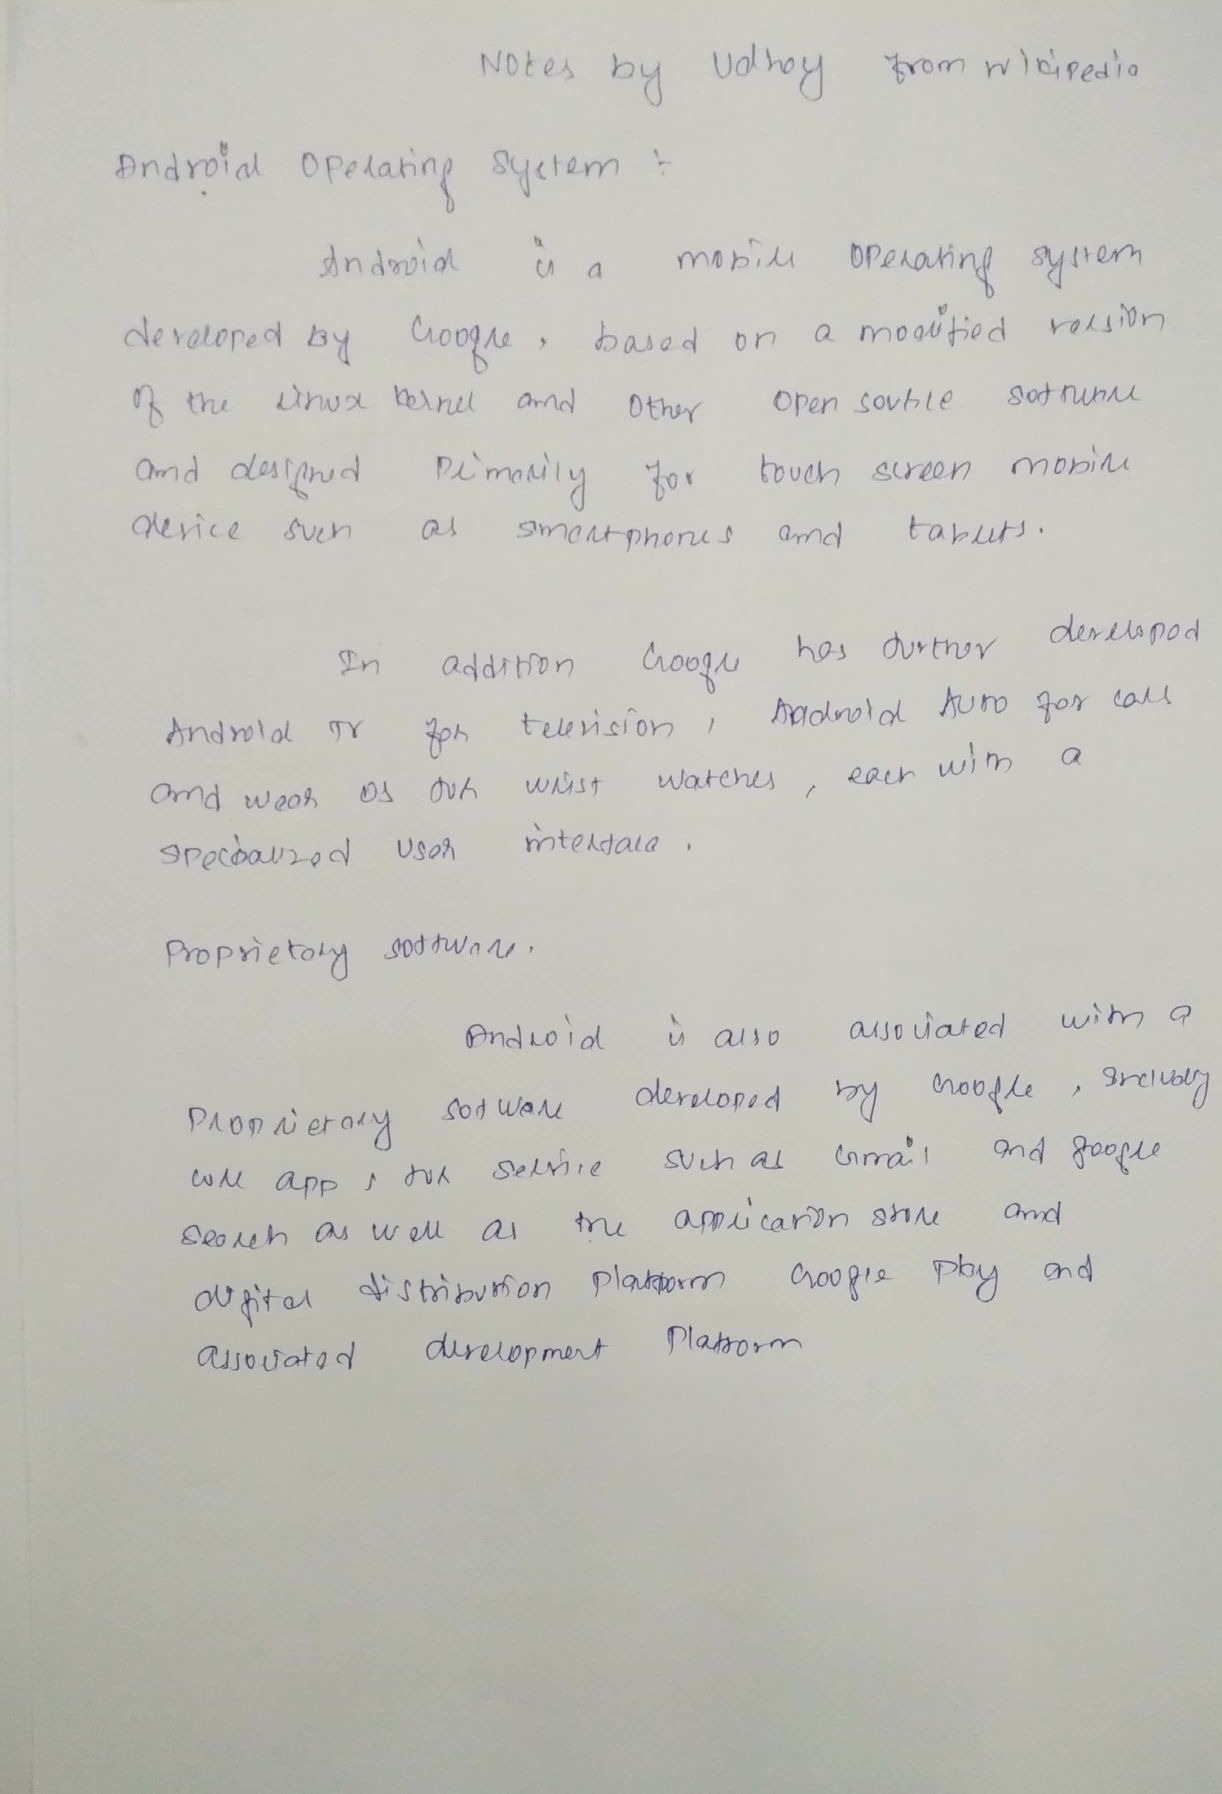 Notes by Udhay from wikipedia
Android Operating System :-
Android is a mobile operating system
developed by Google, based on a modified version
of the Linux kernel and other open source software
and designed primarily for touch screen mobile
device such as smartphones and tablets.
In addition Google has further developed
Android TV for television, Android Auto for cars
and wear OS for wrist watches, each with a
specialized user interface.
Proprietary software.
Android is also associated with a
Proprietary software developed by Google,
core apps for service such as Gmail and google
search as well as the application store and
digital distribution platform Google Play and
associated development Platform